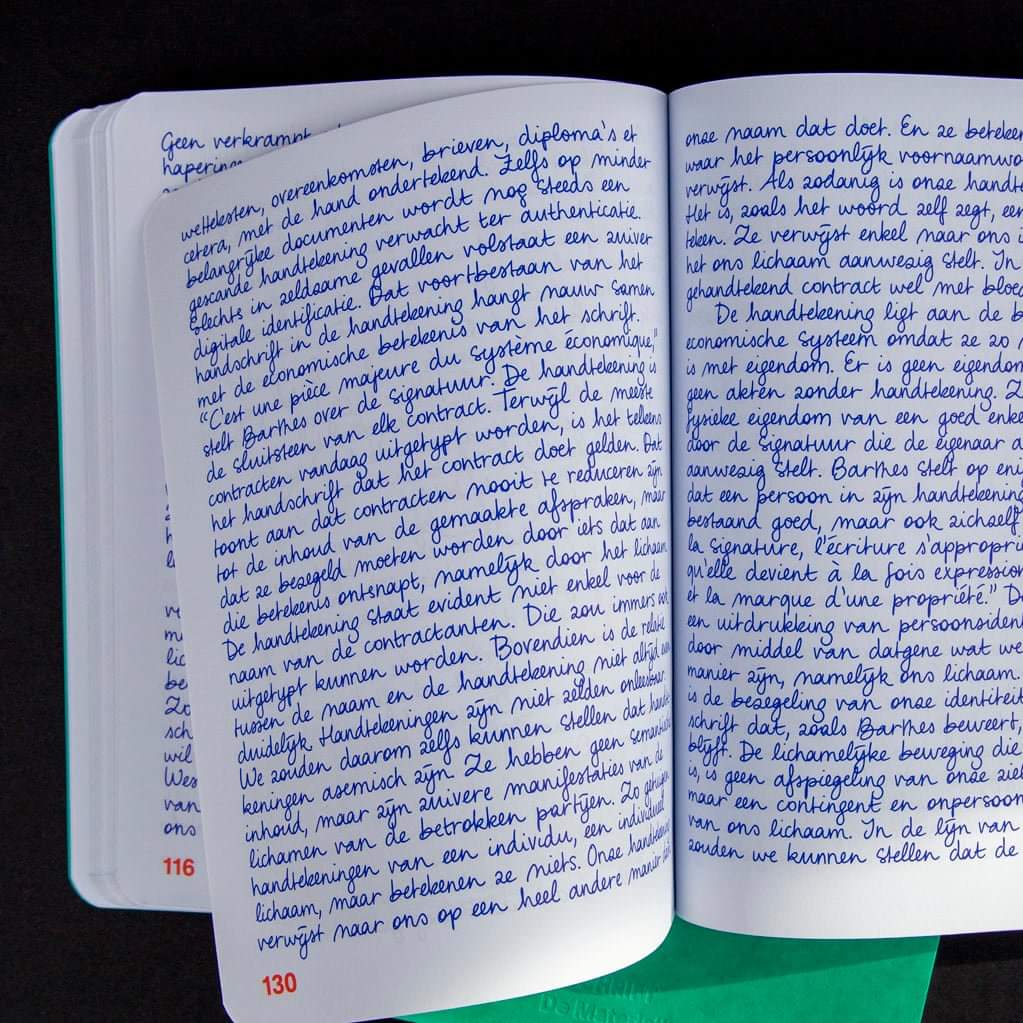 Geen verkrampt
haperin
wetteksten, overeenkomsten, brieven, diploma's et
cetera, met de hand ondertekend. Zelfs op minder
belangrijke documenten wordt nog steeds een
gescande handtekening verwacht ter authenticatie.
Slechts in zeldzame gevallen volstaat een zuiver
digitale identificatie. Dat voortbestaan van het
handschrift in de handtekening hangt nauw samen
met de economische betekenis van het schrift.
"C'est une pièce majeure du système économique,"
stelt Barthes over de signatuur. De handtekening is
de sluitsteen van elk contract. Terwijl de meeste
contracten vandaag uitgetypt worden, is het telkens
het handschrift dat het contract doet gelden. Dat
toont aan dat contracten nooit te reduceren zijn
tot de inhoud van de gemaakte afspraken, maar
dat ze bezegeld moeten worden door iets dat aan
die betekenis ontsnapt, namelijk door het lichaam
De handtekening staat evident niet enkel voor de
naam van de contractanten. Die zou immers ook
uitgetypt kunnen worden. Bovendien is de relatie
tussen de naam en de handtekening niet altijd even
duidelijk Handtekeningen zijn niet zelden onleesbaar.
We zouden daarom zelfs kunnen stellen dat handte-
keningen asemisch zijn. Ze hebben geen semantische
inhoud, maar zijn zuivere manifestaties van de
lichamen van de betrokken partijen. Zo getuigen
handtekeningen van een individu, een individueel
lichaam, maar betekenen ze niets. Onze handtekening
verwijst naar ons op een heel andere manier dan
130
ve
mi
lic
be
Zo
sch
wil
Wes
van
ons
116
onze naam dat doet. En ze beteken
waar het persoonlijk voornaamwo
verwijst. Als zodanig is onze handte
Het is, zoals het woord zelf zegt, een
teken. Ze verwijst enkel naar ons i
het ons lichaam aanwezig stelt. In
gehandtekend contract wel met bloed
De handtekening ligt aan de b
economische systeem omdat ze zo
is met eigendom. Er is geen eigendom
geen akten zonder handtekening. Z
fysieke eigendom van een goed enke
door de signatuur die de eigenaar a
aanwezig stelt. Barthes stelt op eni
dat een persoon in zijn handtekening
bestaand goed, maar ook zichzelf
la signature, l'écriture s'appropri
qu'elle devient à la fois expression
et la marque d'une propriété." De
een uitdrukking van persoonsiden
door middel van datgene wat we
manier zijn, namelijk ons lichaam.
is de bezegeling van onze identiteit
schrift dat, zoals Barthes beweert,
blijft. De lichamelijke beweging die
is, is geen afspiegeling van onze ziel
maar een contingent en onpersoon
van ons lichaam. In de lijn van
zouden we kunnen stellen dat de